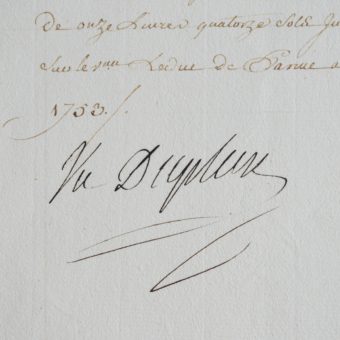 de onze livres quatorze Sols
Sur le Sr. Leduc de
1753./.
Vu Dupleix